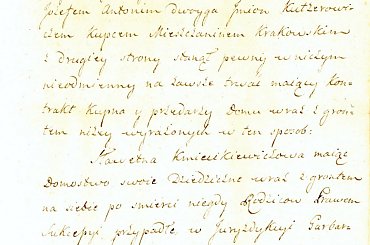 Jozefem Antonim dwoyga Jmion Kutzerowi-
czem Kupcem Mieszczaninem Krakowskim
z drugiey strony stanął pewny w niczym
nieodmienny na zawsze trwać maiący Kon-
trakt Kupna y przedaży Domu wraz z grun-
tem niżey wyrażonych w ten sposob:
Sławetna Kmiecikiewiczowa maiąc
Domostwo swoie Dziedziczne wraz z gruntem
na siebie po śmierci niegdy Rodzicow Prawem
Sukcessyi przypadłe w Juryzdykcyi Garbar-